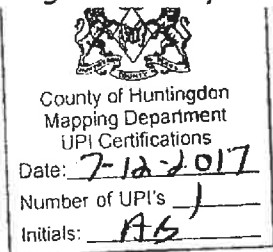 County of Huntingdon
Mapping Department
UPI Certifications
Date: 7-12-2017
Number of UPI's 1
Initials: AB